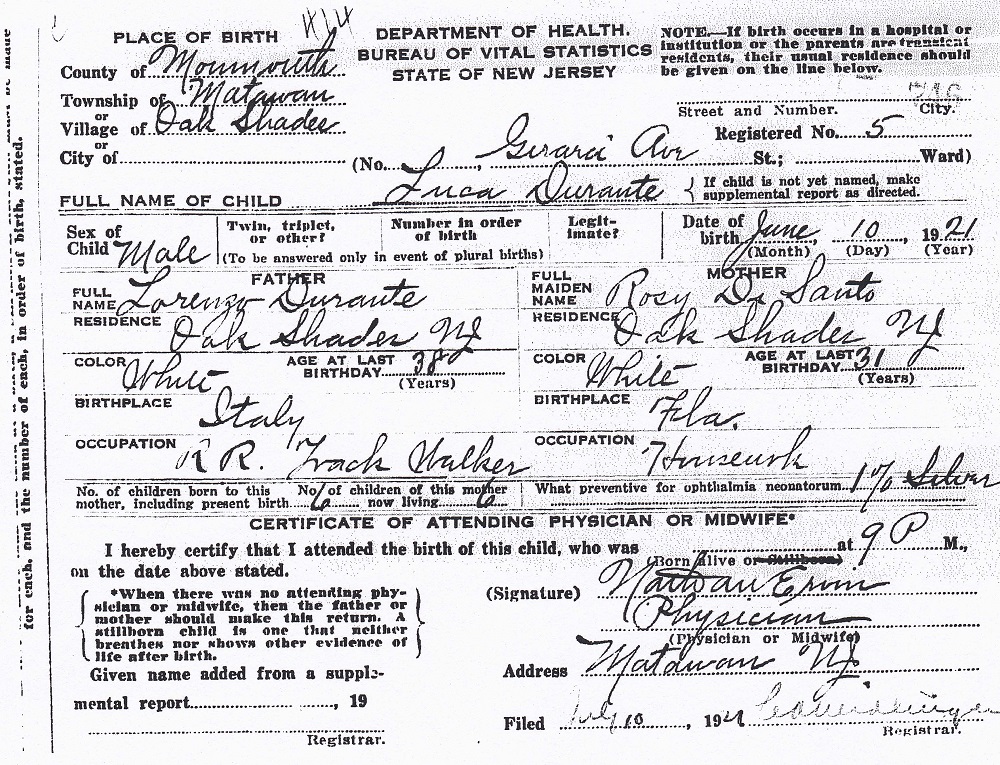 H/4
PLACE OF BIRTH
DEPARTMENT OF HEALTH.
BUREAU OF VITAL STATISTICS
STATE OF NEW JERSEY
NOTE.—If birth occurs in a hospital or
institution or the parents are transient
residents, their usual residence should
be given on the line below.
County of Monmouth
Township of Matawan
or
Village of Oak Shades
or
City of
Street and Number. City.
Registered No. 5
(No. Girard Ave St.; Ward)
FULL NAME OF CHILD Luca Durante { If child is not yet named, make
supplemental report as directed.
Sex of
Child Male
Twin, triplet,
or other?
Number in order
of birth
(To be answered only in event of plural births)
Legit-
imate?
Date of
birth June, 10, 1921
(Month) (Day) (Year)
FATHER
FULL
NAME Lorenzo Durante
RESIDENCE
Oak Shades NJ
COLOR White
AGE AT LAST
BIRTHDAY 38
(Years)
BIRTHPLACE
Italy
OCCUPATION
R R. Track Walker
MOTHER
FULL
MAIDEN
NAME Rosy De Santo
RESIDENCE
Oak Shades NJ
COLOR White
AGE AT LAST
BIRTHDAY 31
(Years)
BIRTHPLACE
Fla.
OCCUPATION
Housewk
No. of children born to this
mother, including present birth. 6
No. of children of this mother
now living 6
What preventive for ophthalmia neonatorum. 1% Silver
CERTIFICATE OF ATTENDING PHYSICIAN OR MIDWIFE*
I hereby certify that I attended the birth of this child, who was at 9 P M.,
(Born alive or Stillborn)
on the date above stated.
*When there was no attending phy-
sician or midwife, then the father or
mother should make this return. A
stillborn child is one that neither
breathes nor shows other evidence of
life after birth.
(Signature) Nathan Ervin
Physician
(Physician or Midwife)
Given name added from a supple-
mental report , 19
Registrar.
Address Matawan NJ.
Filed July 10, 1921
Registrar.